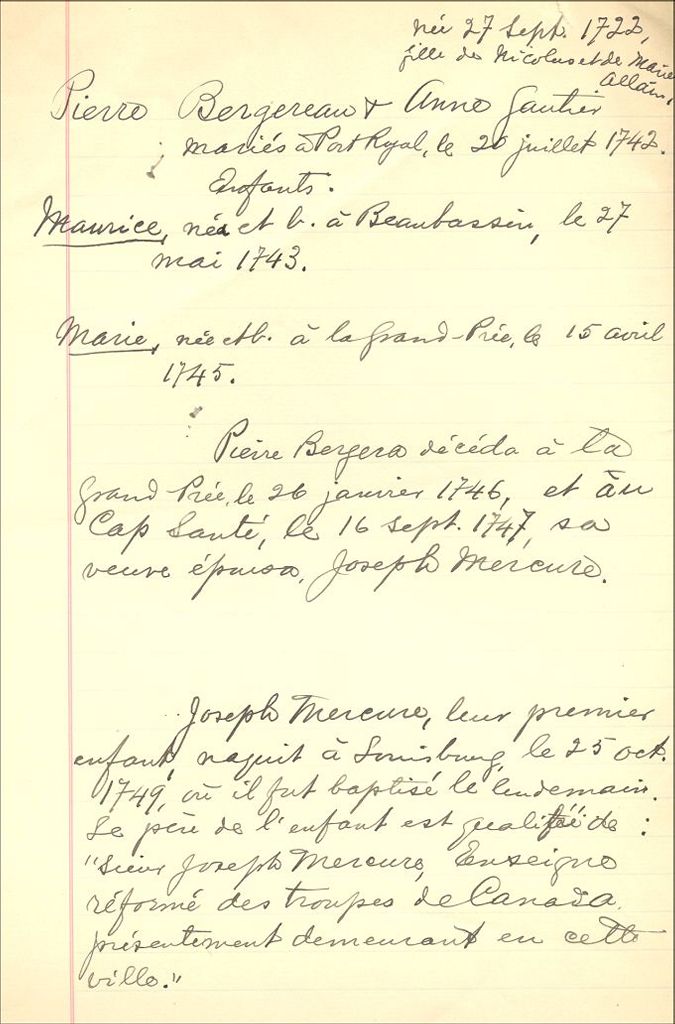 née 27 Sept. 1722,
fille de Nicolas et de Marie
Allain.
Pierre Bergereau & Anne Gautier
mariés à Port Ryal, le 20 juillet 1742.
Enfants.
Maurice, née et b. à Beaubassin, le 27
mai 1743.
Marie, née et b. à la Grand-Prée, le 15 avril
1745.
Pierre Bergera décéda à la
Grand Prée, le 26 janvier 1746, et au
Cap Santé, le 16 Sept. 1747, sa
veuve épousa, Joseph Mercure.
Joseph Mercure, leur premier
enfant, naquit à Louisbourg, le 25 oct.
1749, où il fut baptisé le lendemain.
Le père de l'enfant est qualifié de :
"Sieur Joseph Mercure, Enseigne
réformé des troupes de Canada,
présentement demeurant en cette
ville."